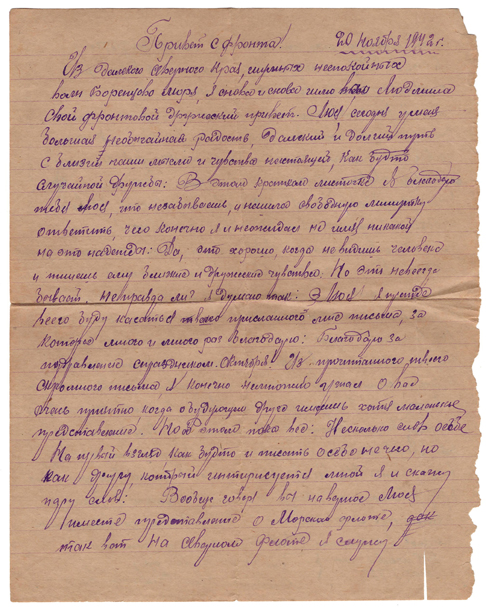 Привет с фронта! 20 ноября 1942 г.
Из далекого северного края, шумных неспокойных
волн Баренцево моря, я снова и снова шлю Людмила
свой фронтовой дружеский привет. Люся сегодня у меня
большая необычайная радость, далекий и долгий путь
с близкий наши мысли и чувства настоящей, как будто
случайной дружбы: В этом кратком листочке я благодарю
тебя Люся, что незабываешь, и нашла свободную минутку
ответить, чего конечно я и неожидал не имея никакой
на это надежды: Да, это хорошо, когда не видишь человека
и пишешь ему близкие и дружеские чувства. Но это невсегда
бывает, неправда ли? Я думаю так: Э Люся я пуста
всего буду касаться присланного мне письма, за
которое много и много раз благодарю: Благодарю за
поздравление с праздником Октября Из прочитанного твоего
скромного письма я конечно немножко узнал о
очень приятно когда о будующем друге имеешь хотя маленькое
представление. Но об этом пока всё: Несколько слов о себе
На первый взгляд как будто и писать особо нечего, но
как другу, который интересуется мной я и скажу
пару слов: Вообще говоря вы наверное Люся
имеете представление о Морском флоте,
так вот на северном флоте я служу